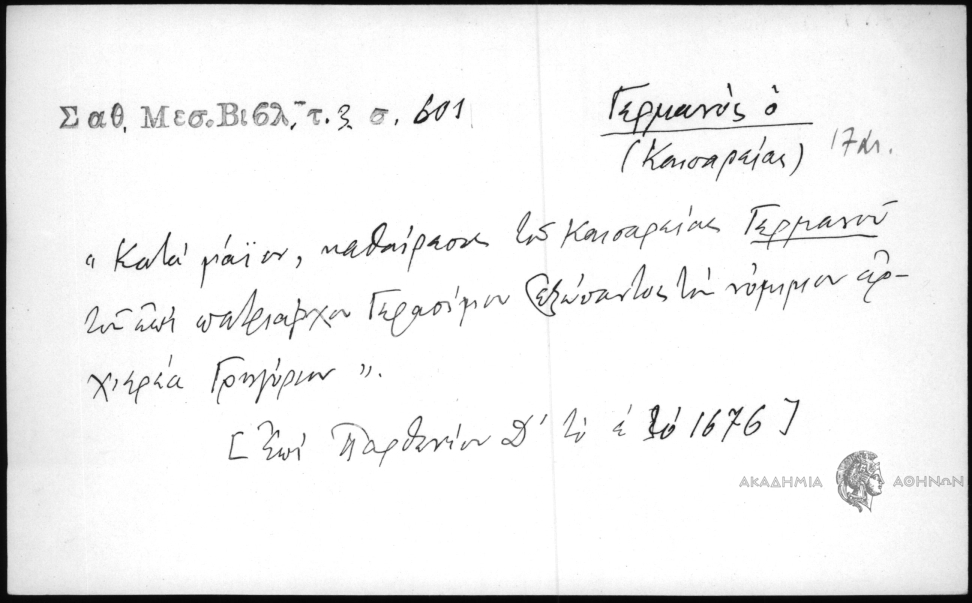 Σαθ. Μεσ. Βιβλ. τ. 3. σ. 601
Γερμανός ὁ
(Καισαρείας) 17 αι.
"Κατά μάϊον, καθαίρεσις τοῦ Καισαρείας Γερμανοῦ
τοῦ ἐπί πατριάρχου Γερασίμου ἐξώσαντος τόν νόμιμον ἀρ-
χιερέα Γρηγόριον".
[Ἐπί Παρθενίου Δ' τό έ τό 1676]
ΑΚΑΔΗΜΙΑ ΑΘΗΝΩΝ